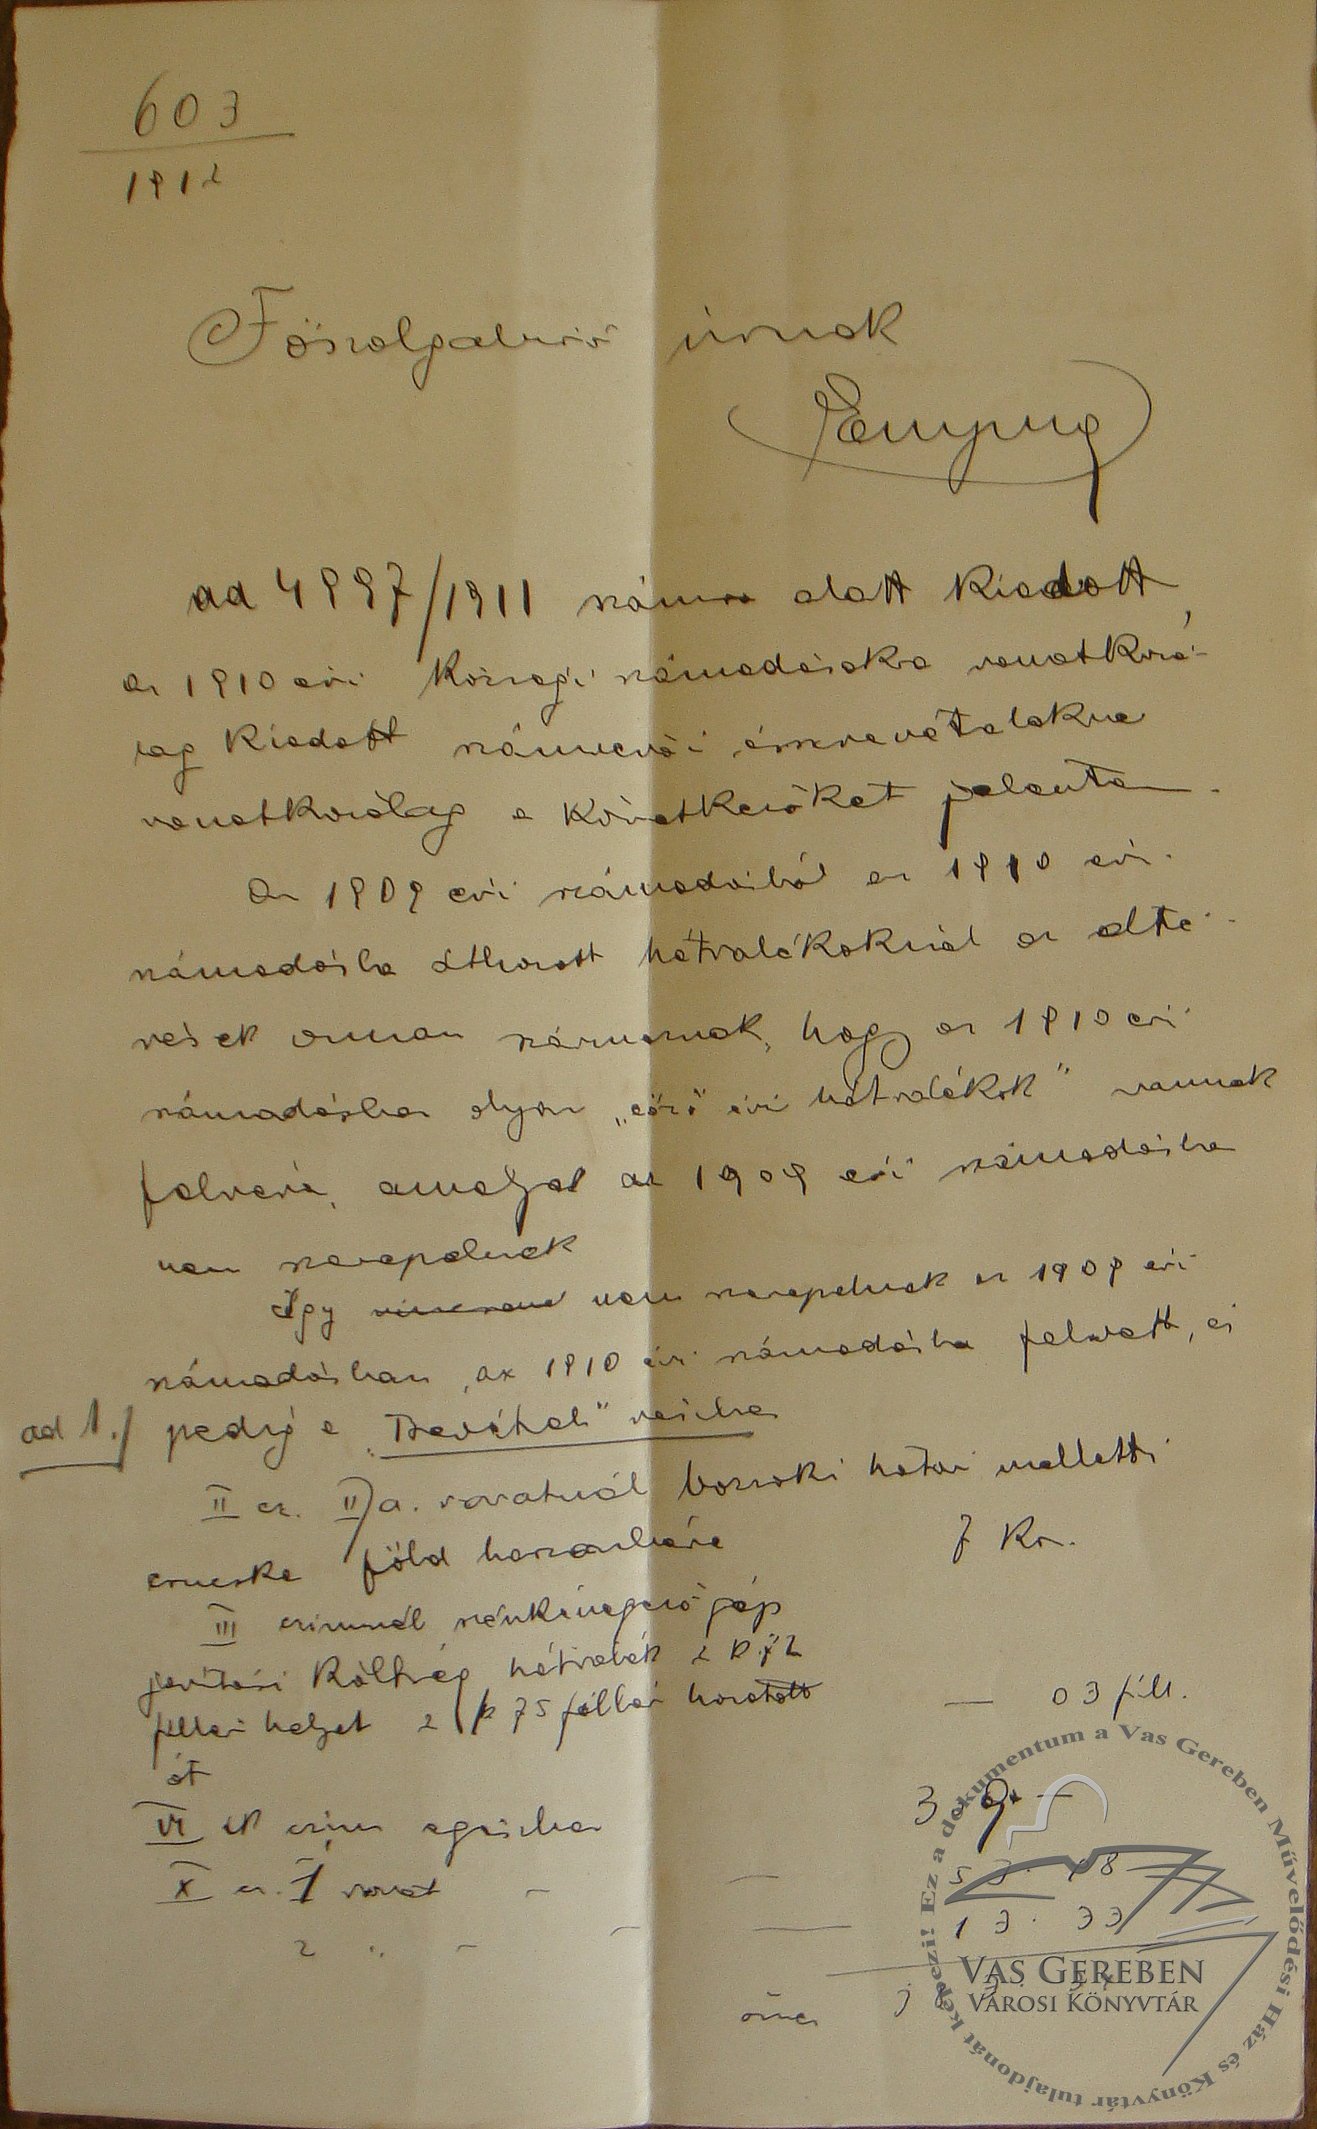 603
1912
Főszolgabiró úrnak
ad 4997/1911 szám alatt kiadott,
az 1910 évi községi számadásokra vonatkozó-
lag kiadott számvevői észrevételekre
vonatkozólag a következőket jelentem.
Az 1909 évi számadásból az 1910 évi
számadásba áthozott hátralékoknál az elté-
rések onnan származnak, hogy az 1910 évi
számadásba olyan „előző évi hátralékok” vannak
felvéve, amelyek az 1909 évi számadásba
nem szerepelnek
Igy nem szerepelnek az 1909 évi
számadásban, az 1910 évi számadásba felvett, és
ad 1./ pedig a „Bevételi” részben
II cz. II/a. rovatnál boszoki határ melletti
föld haszonbére 7 Kr.
III czimnél
javitási költség hátralék 2 K 72
fillér helyet 2 K 75 fillér hozatott — 03 fill.
át
VI ik czim egészben 3 9. —
X cz. 1 rovat — — 53. 48
2 „ — — — 13. 33
össze
Ez a dokumentum a Vas Gereben Művelődési Ház és Könyvtár tulajdonát képezi!
VAS GEREBEN
VÁROSI KÖNYVTÁR